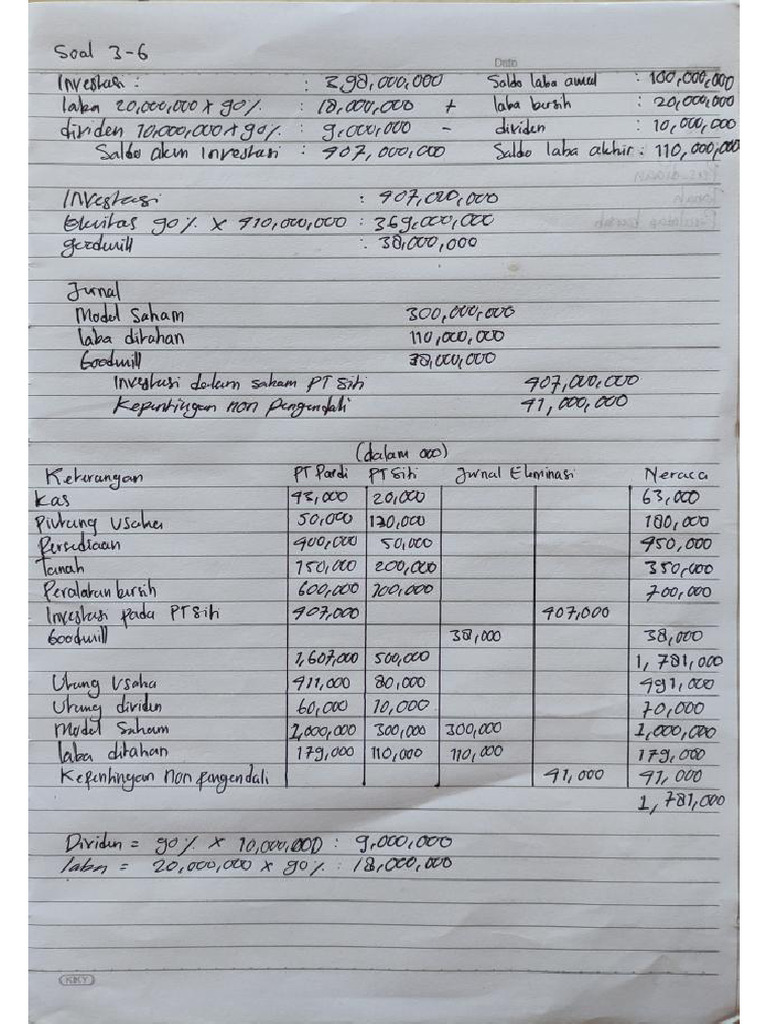 Soal 3-6
Date
Investasi : : 398,000,000 Saldo laba awal : 100,000,000
laba 20,000,000 x 90% : 18,000,000 + laba bersih : 20,000,000
dividen 10,000,000 x 90% : 9,000,000 - dividen : 10,000,000
Saldo akun investasi : 407,000,000 Saldo laba akhir : 110,000,000
Investasi : 407,000,000
Ekuitas 90% x 410,000,000 : 369,000,000
goodwill : 38,000,000
Jurnal
Modal Saham 300,000,000
laba ditahan 110,000,000
Goodwill 38,000,000
Investasi dalam saham PT Siti 407,000,000
Kepentingan non pengendali 41,000,000
(dalam 000)
Keterangan PT Pardi PT Siti Jurnal Eliminasi Neraca
Kas 43,000 20,000 63,000
Piutang Usaha 50,000 130,000 180,000
Persediaan 400,000 50,000 450,000
Tanah 150,000 200,000 350,000
Peralatan bersih 600,000 100,000 700,000
Investasi pada PT Siti 407,000 407,000
Goodwill 38,000 38,000
1,607,000 500,000 1,781,000
Utang Usaha 411,000 80,000 491,000
Utang dividen 60,000 10,000 70,000
Modal Saham 1,000,000 300,000 300,000 1,000,000
laba ditahan 179,000 110,000 110,000 179,000
Kepentingan non pengendali 41,000 41,000
1,781,000
Dividen = 90% x 10,000,000 : 9,000,000
laba = 20,000,000 x 90% : 18,000,000
KKY